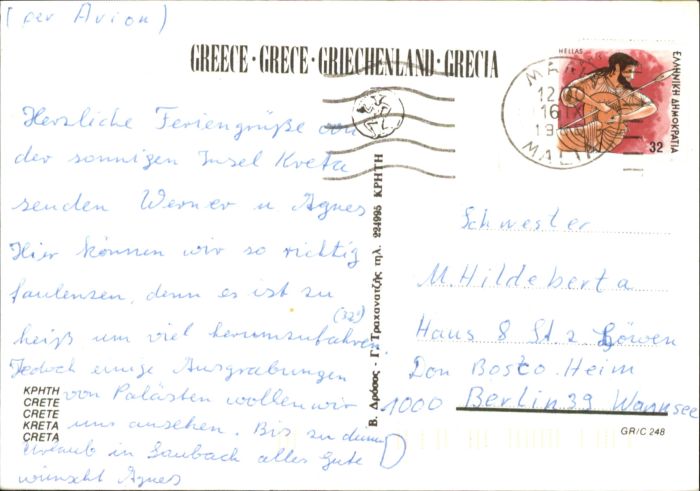 (per Avion)
GREECE · GRECE · GRIECHENLAND · GRECIA
Herzliche Feriengrüße von
der sonnigen Insel Kreta
senden Werner u Agnes
Hier können wir so richtig
faulenzen, denn es ist zu
(32°)
heiß um viel herumzufahren.
Jedoch einige Ausgrabungen
von Palästen wollen wir
uns ansehen. Bis zu dem
Urlaub in Saubach alles Gute
wünscht Agnes
ΚΡΗΤΗ
CRETE
CRETE
KRETA
CRETA
Β. Δρόσος - Γ. Τραχανατζής τηλ. 224995 ΚΡΗΤΗ
HELLAS
ΕΛΛΗΝΙΚΗ ΔΗΜΟΚΡΑΤΙΑ
32
12
16 IX
19
MALIA
Schwester
M. Hildeberta
Haus 8 St. 2 Löwen
Don Bosco-Heim
1000 Berlin 39 Wannsee
GR/C 248